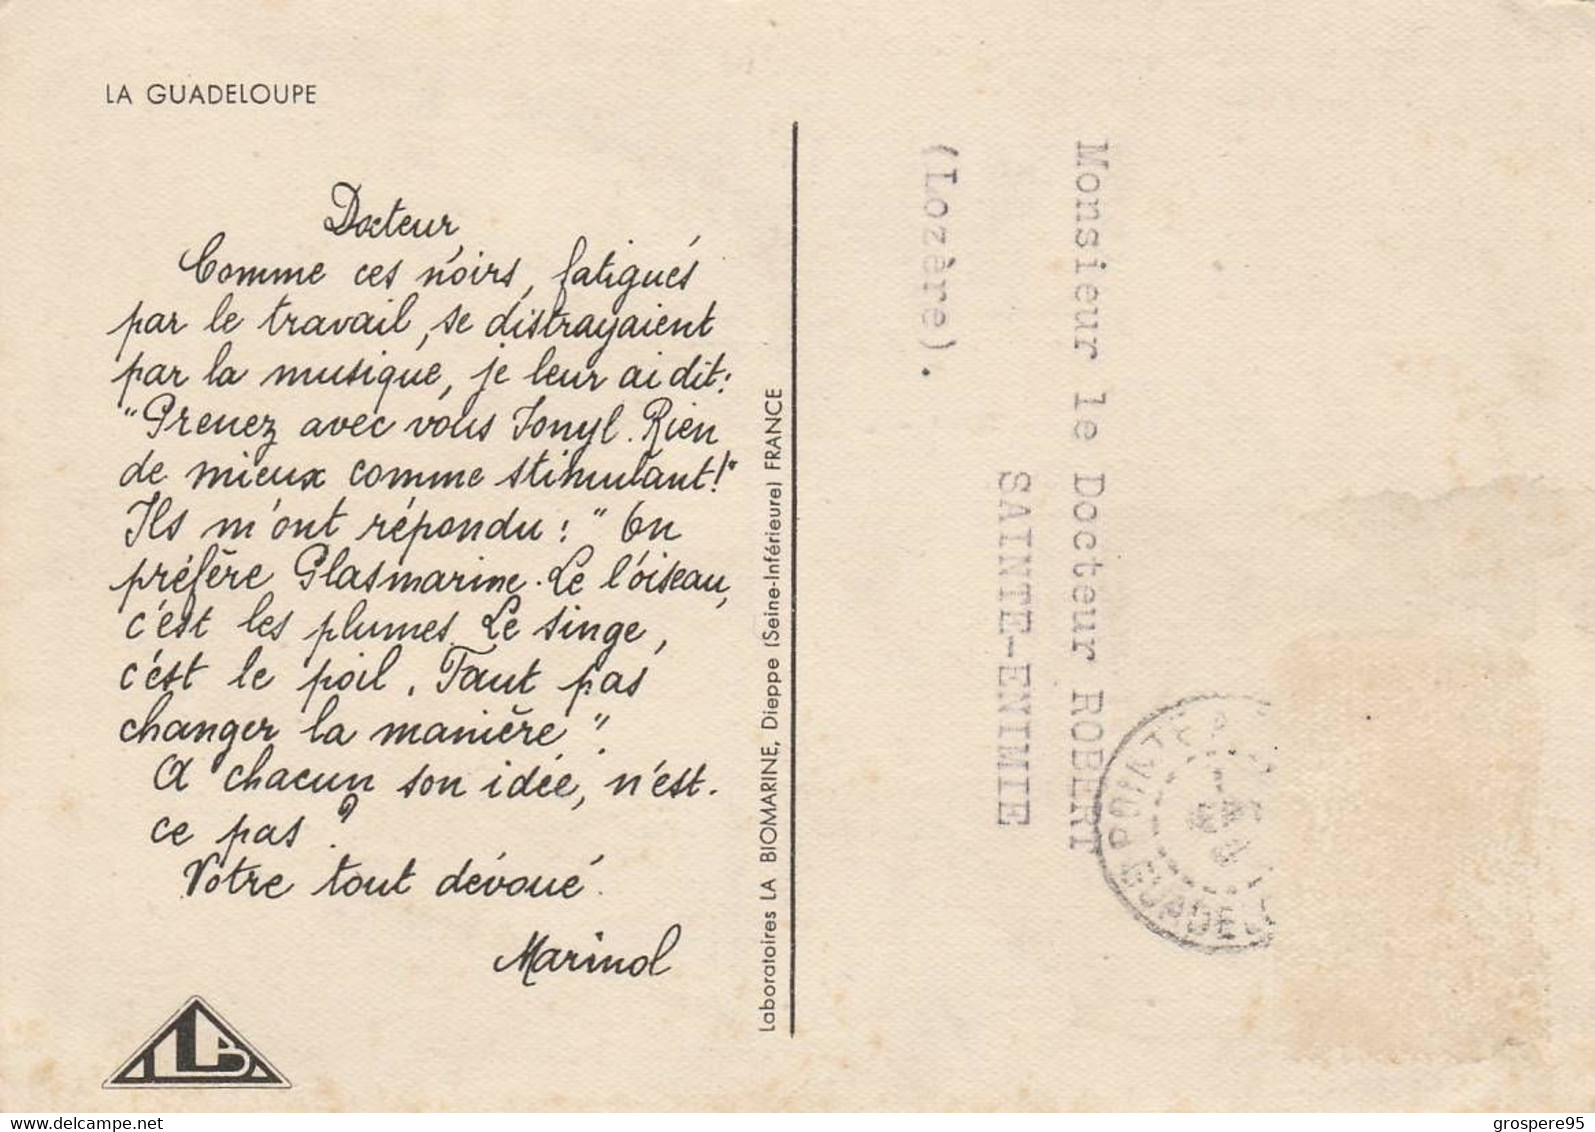 LA GUADELOUPE
Docteur,
Comme ces noirs, fatigués
par le travail, se distrayaient
par la musique, je leur ai dit:
"Prenez avec vous Ionyl. Rien
de mieux comme stimulant!"
Ils m'ont répondu: "On
préfère Plasmarine. Le l'oiseau,
c'est les plumes. Le singe,
c'est le poil. Faut pas
changer la manière".
A chacun son idée, n'est-
ce pas?
Votre tout dévoué.
Marinol
Laboratoires LA BIOMARINE, Dieppe (Seine-Inférieure) FRANCE
Monsieur le Docteur ROBERT
SAINTE-ENIMIE
(Lozère).
www.delcampe.net
grospere95